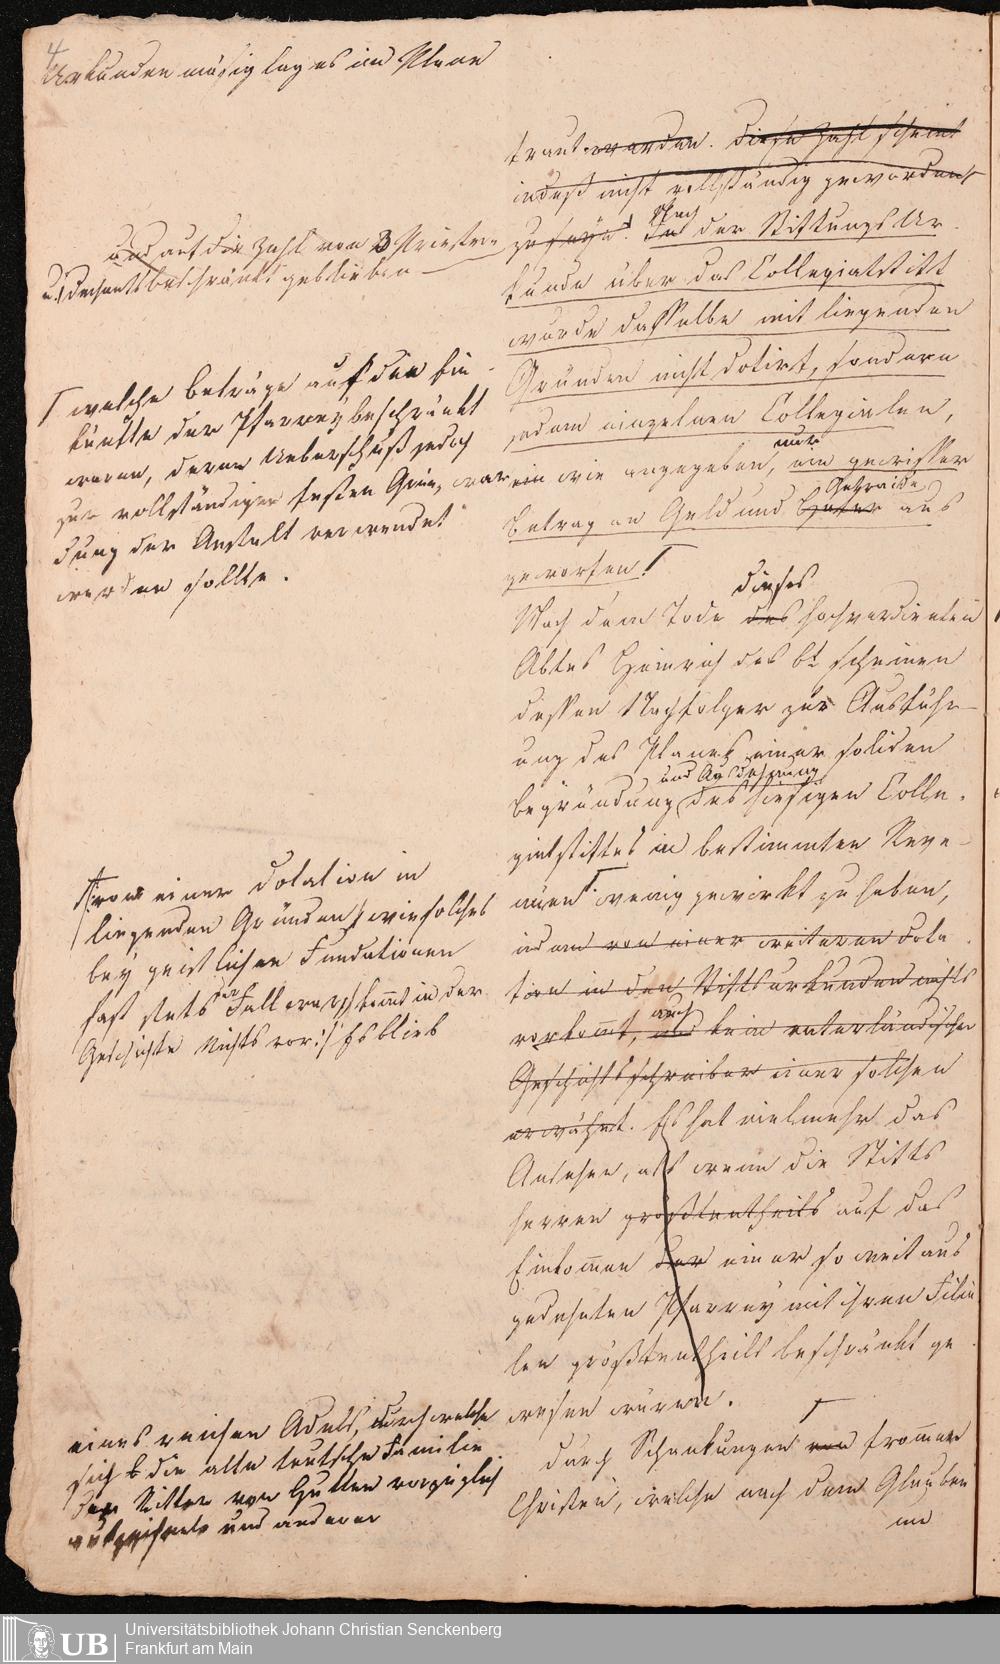 4
Urkunden mäsig lag es im Plane
und auf die Zahl von 3 Priestern
u. 1 Dechant beschränkt geblieben
welche Beträge auf die Ein
künfte der Pfarrey beschränkt
waren, deren Ueberschuß jedoch
zur vollständigen festen Grün,
dung der Anstalt verwendet
werden sollte.
von einer Dotation in
liegenden Gründen, wie solches
bey geistlichen Fundationen
fast stets der Fall war, kommt in der
Geschichte Nichts vor. Es blieb
eines reichen Adels, durch welche
sich die alte teutsche Familie
der Ritter von Hutten vorzüglich
auszeichnete und anderer
traut worden. Diese Zahl scheint
indeß nicht vollständig geworden
zu seyn. Nach der Stiftungs Ur
kunde über das Collegiatstift
wurde dasselbe mit liegenden
Gründen nicht dotirt, sondern
jedem einzelnen Collegialen,
war wie angegeben, nur ein gewisser
Betrag an Geld und Hafer Getraide aus
geworfen.
Nach dem Tode des dieses hochverdienten
Abtes Heinrich des 6t scheinen
dessen Nachfolger zur Ausführ
ung des Planes einer soliden
Begründung und Ausdehnung des hiesigen Colle
giatstiftes in bestimmten Reve
nüen wenig gewirkt zu haben,
indem von einer weiteren Dota
tion in den Stiftsurkunden nichts
vorkommt, auch kein vaterländischer
Geschichtsschreiber einer solchen
erwähnt. Es hat vielmehr das
Ansehen, als wenn die Stifts
herren größtentheils auf das
Einkommen der einer so weit aus
gedehnten Pfarrey mit ihren Filia
len größtentheils beschränkt ge
wesen wären.
Durch Schenkungen von frommen
Christen, welche nach dem Glauben
im
Universitätsbibliothek Johann Christian Senckenberg
Frankfurt am Main
UB